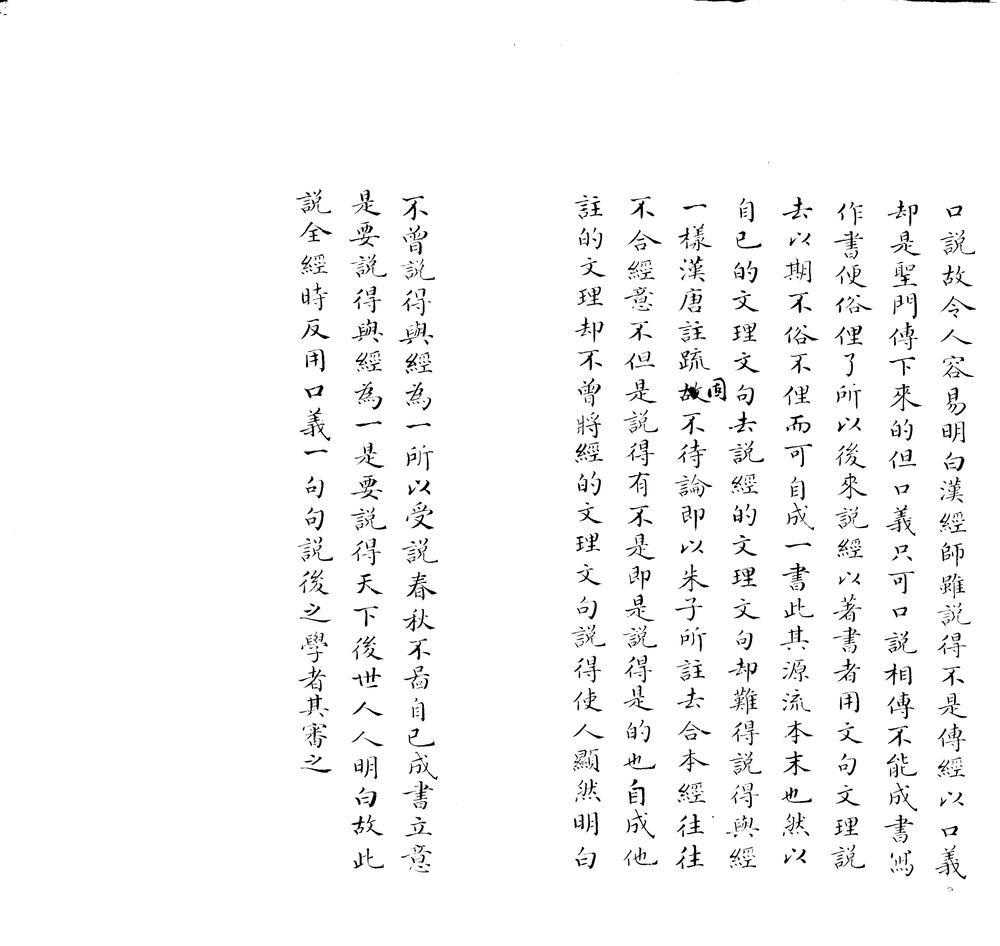 口說故令人容易明白漢經師雖說得不是傳經以口義
却是聖門傳下來的但口義只可口說相傳不能成書寫
作書便俗俚了所以後來說經以著書者用文句文理說
去以期不俗不俚而可自成一書此其源流本末也然以
自已的文理文句去說經的文理文句却難得說得與經
一樣漢唐註疏固不待論即以朱子所註去合本經往往
不合經意不但是說得有不是即是說得是的也自成他
註的文理却不曾將經的文理文句說得使人顯然明白
不曾說得與經為一所以受說春秋不啚自已成書立意
是要說得與經為一是要說得天下後世人人明白故此
說全經時反用口義一句句說後之學者其審之